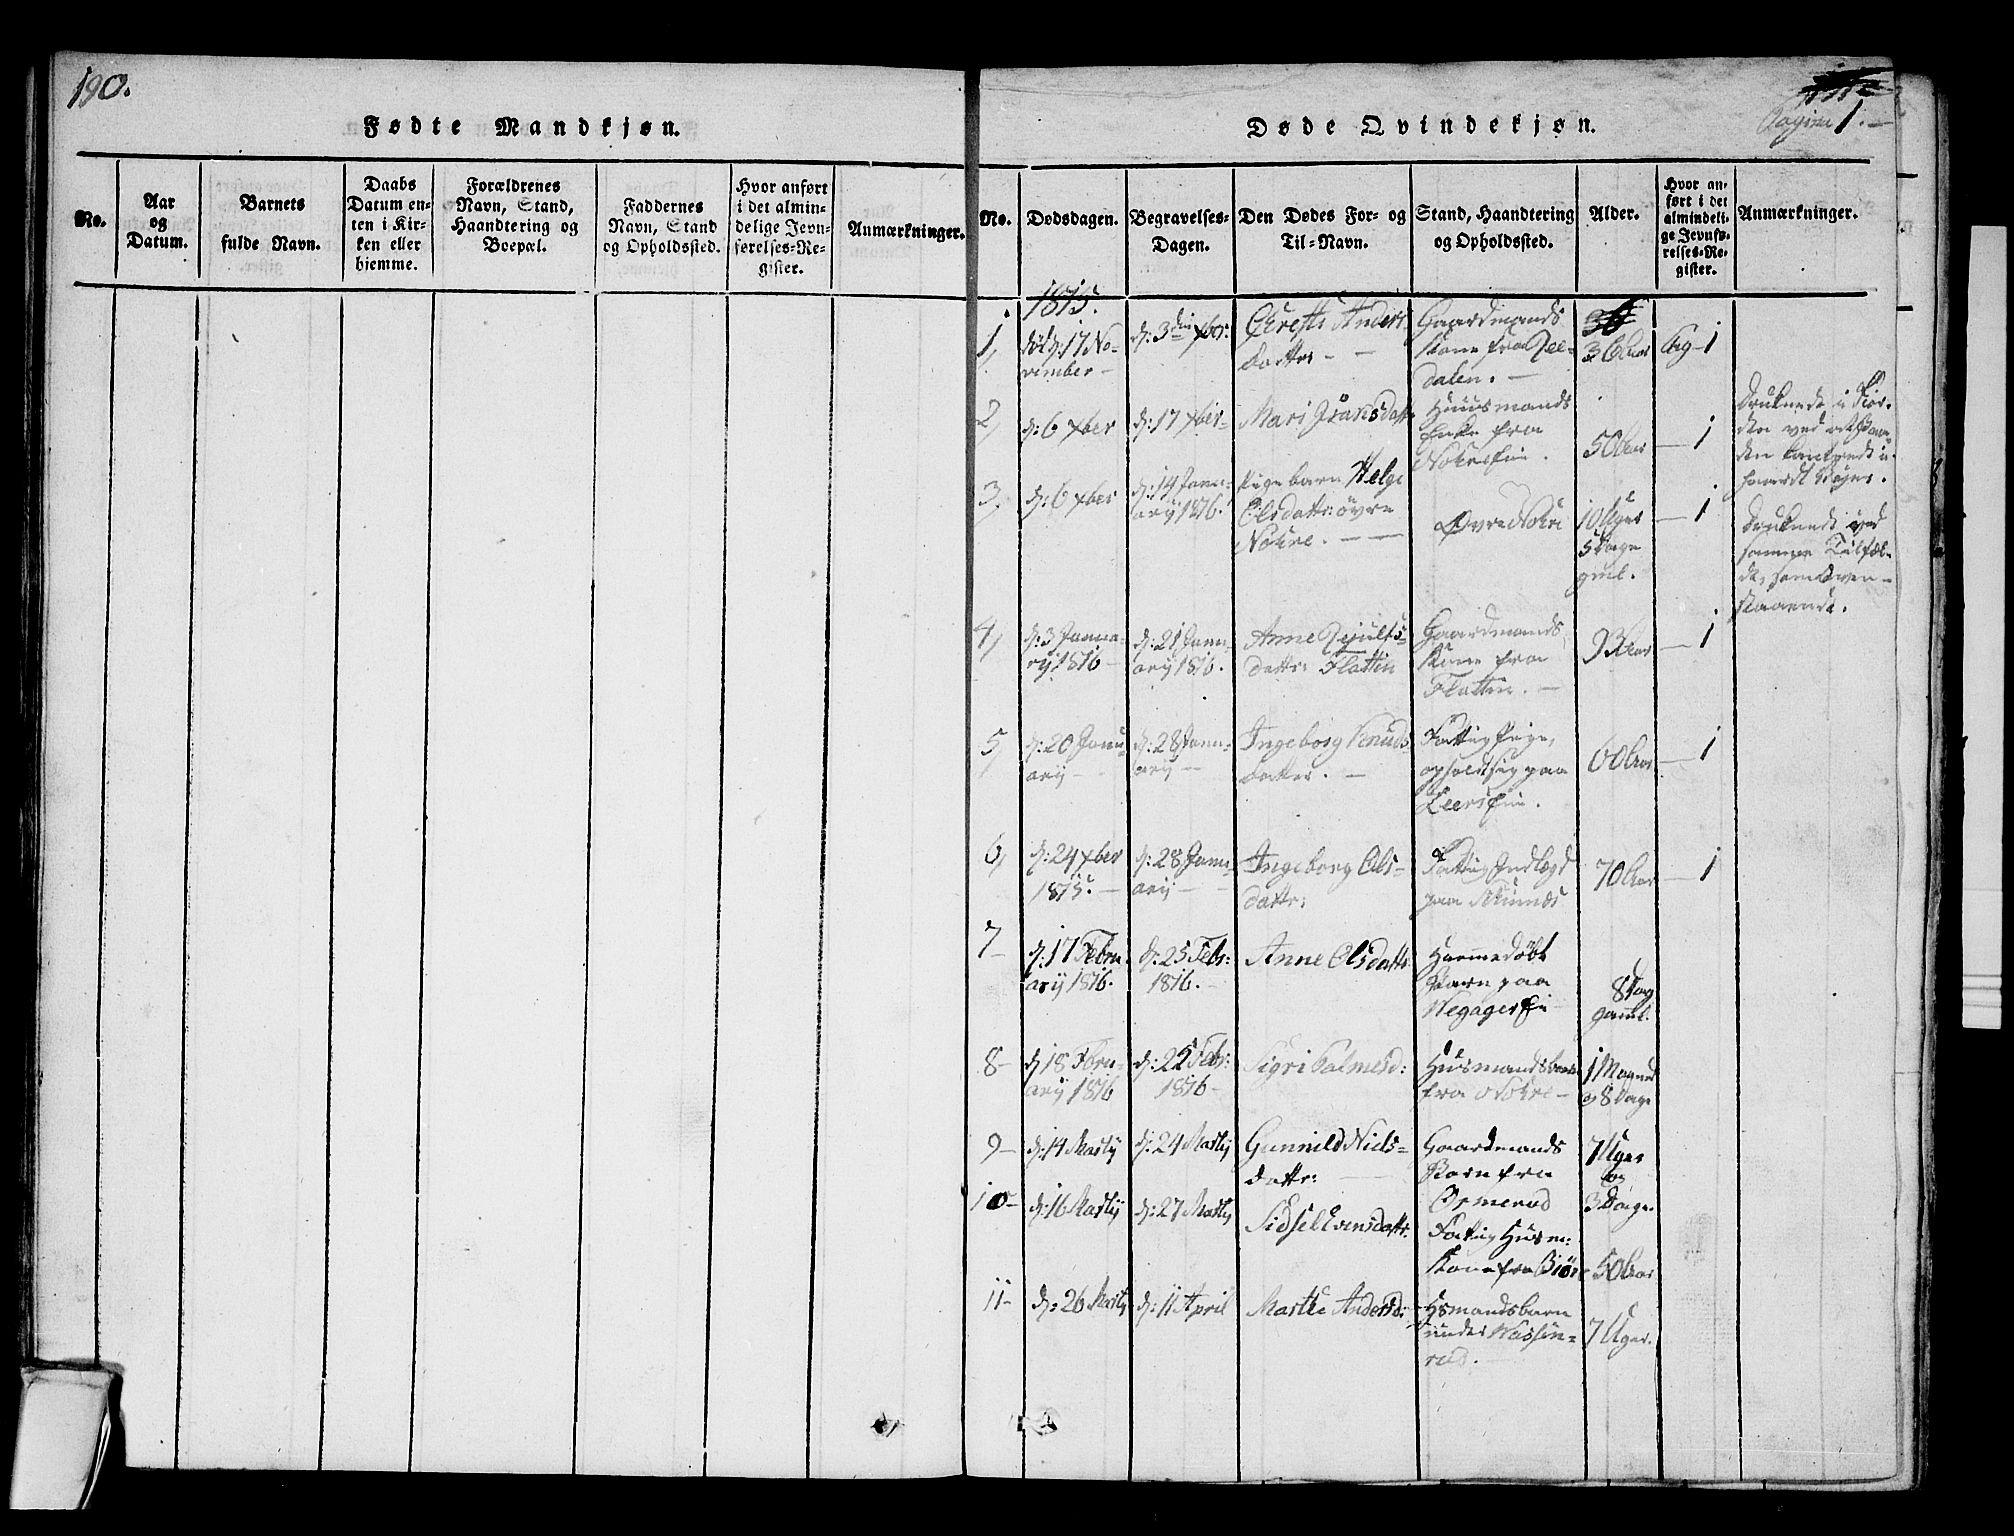 190.
Fødte Mandkjøn.
No.
Aar
og
Datum.
Barnets
fulde Navn.
Daabs
Datum en-
ten i Kir-
ken eller
hjemme.
Forældrenes
Navn, Stand,
Haandtering og
Boepæl.
Faddernes
Navn, Stand
og Opholdssted.
Hvor anført
i det almin-
delige Jevn-
førelses-Re-
gister.
Anmærkninger.
Pagina 1.
Døde Qvindekjøn.
No.
Dødsdagen.
Begravelses-
Dagen.
Den Dødes For- og
Til-Navn.
Stand, Haandtering
og Opholdssted.
Alder.
Hvor an-
ført i det
almindeli-
ge Jevnfø-
relses-Re-
gister.
Anmærkninger.
1815.
1,
død d: 17 No-
vember
d: 3die xbr:
Anders
datter
Gaardmands
Kone fra
dalen.
36 Aar
Pag 1
2,
d: 6 xber
d: 17 xber
Mari
Huusmands
Enke fra
50 Aar
1
Druknede i Fior-
den ved at Baa-
den kantrede i
haardt Vejer.
3,
d: 6 xber
d: 14 Janu-
arij 1816.
Pigebarn Helge
Olsdattr: øvre
Nokre.
Øvre Nokre
10 Uger
5 Dage
gml.
1
Druknede ved
samme Tilfæl-
de, som oven-
staaende.
4,
d: 3 Janua-
rij 1816
d: 21 Janu-
arij 1816.
Anne
dattr: Flattin
Gaardmands
Kone fra
Flatten.
93 Aar
1
5,
d: 20 Janu-
arij
d: 28 Janu-
arij
Ingeborg Knuds
datter.
Fattig Pige,
opholdt sig paa
60 Aar
1
6,
d: 24 xber
1815.
d: 28 Janu-
arij
Ingeborg Ols-
dattr:
Fattig Indlagd
paa
70 Aar
1
7
d: 17 Febru-
arij 1816.
d: 25 Febr:
1816.
Anne Olsdattr
Hiemmedøbt
Barn paa
8 Dag
gaml.
8
d: 18 Febru-
arij 1816
d: 25 Febr:
1816
Sigri Palmesd:
Husmandsbarn
fra Nokre
1 Maaned
og 8 Dage
9
d: 14 Martij
d: 24 Martij
Gunnild Niels-
dattr:
Gaardmands
Barn fra
Ormerud
7 Uger
og
3 Dage.
10
d: 16 Martij
d: 27 Martij
Sidsel Evensdattr:
Fattig Husm:
Kone fra Biør
50 Aar
11
d: 26 Martij
d: 11 April
Marthe Andersd:
Hsmandsbarn
under
rud.
7 Uger.